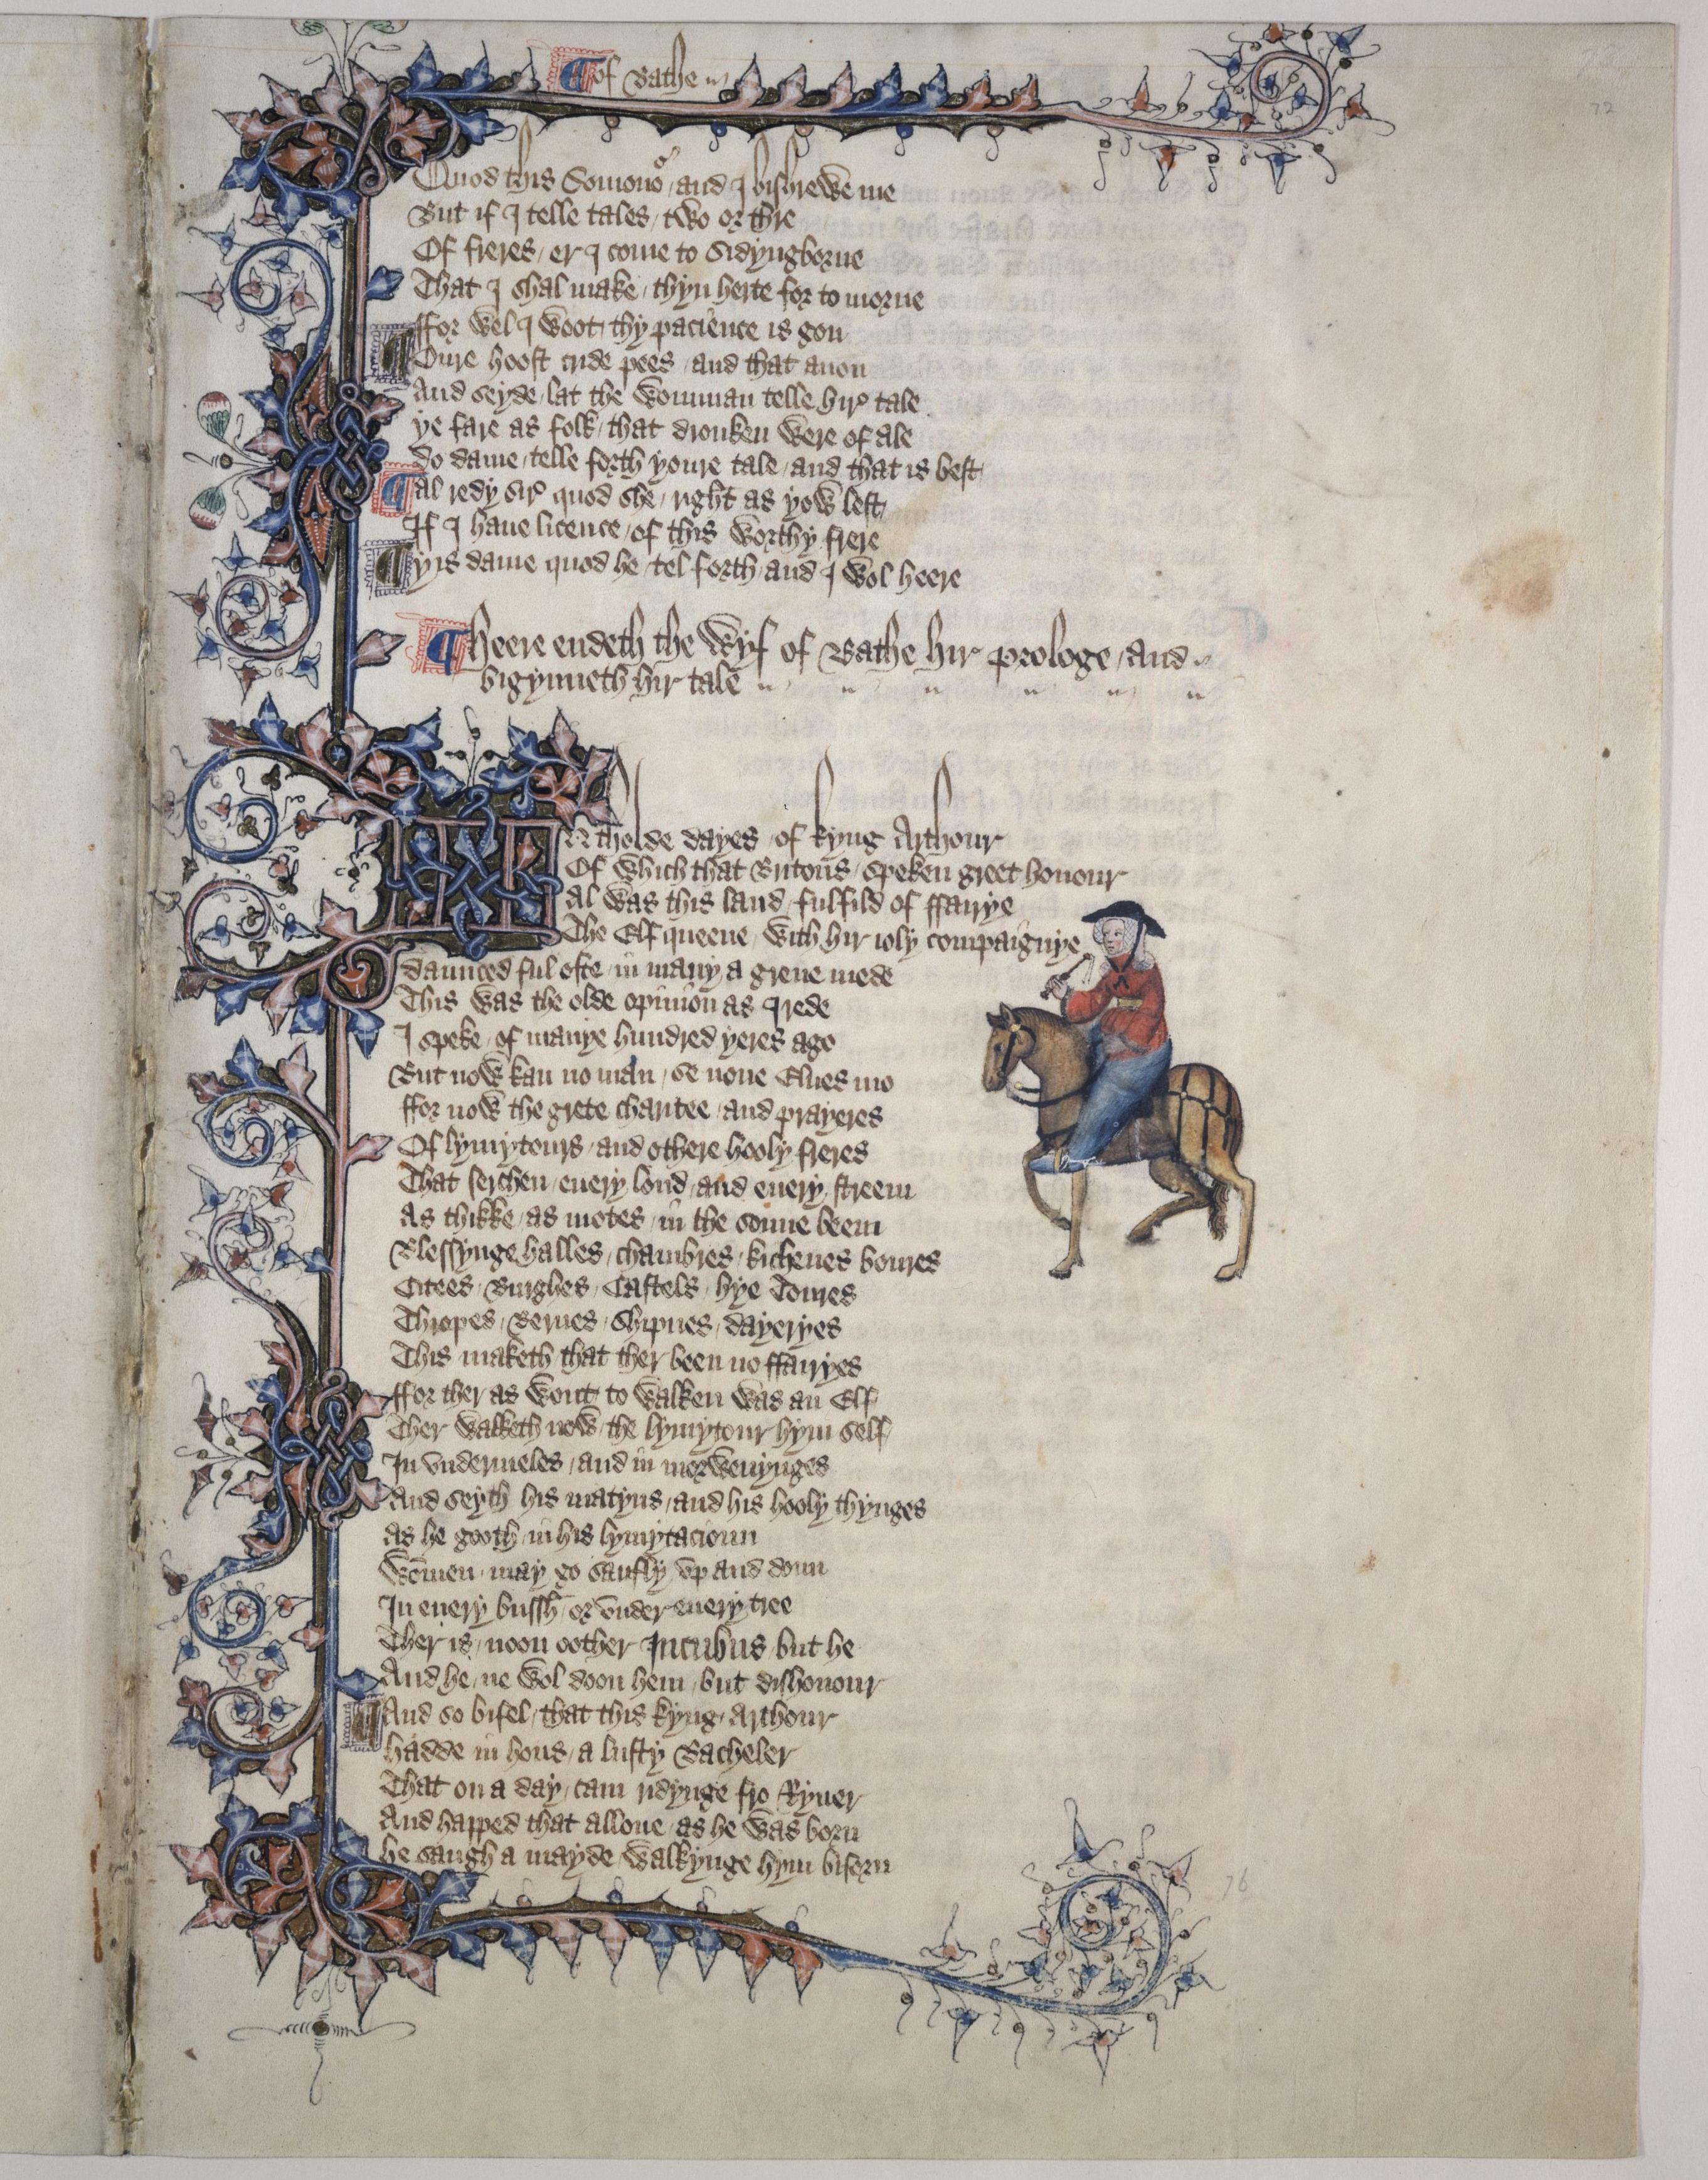 ¶ of Bathe
72
Quod this Somonor / and I bishrewe me
But if I telle tales / two or thre
Of freres / er I come to Sidyngborne
That I shal make / thyn herte for to morne
ffor wel I woot / thy pacience is gon
¶ Oure hoost cride pees / and that anon
And seyde / lat the womman telle hir tale
ye fare as folk / that dronken were of ale
Do dame / telle forth youre tale / and that is best
¶ Al redy sir quod she / right as yow lest
If I haue licence / of this worthy frere
¶ yis dame quod he / tel forth and I wol heere
¶ Heere endeth the Wyf of Bathe hir prologe / and
bigynneth hir tale
IN tholde dayes / of kyng Arthour
Of which that Britons / speken greet honour
Al was this land / fulfild of ffairye
The Elf queene / with hir ioly compaignye
daunced ful ofte / in many a grene mede
This was the olde opinion as I rede
I speke / of manye hundred yeres ago
But now kan no man / se none Elues mo
ffor now the grete charitee / and prayeres
Of lymytours / and othere hooly freres
That serchen / euery lond / and euery streem
As thikke / as motes / in the sonne beem
Blessynge halles / chambres / kichenes boures
Citees / Burghes / Castels / hye Toures
Thropes / Bernes / Shipnes / dayeryes
This maketh that ther been no ffairyes
ffor ther as wont to walken was an Elf
Ther walketh now / the lymytour hym self
In vndermeles / and in morwenynges
And seyth his matyns / and his hooly thynges
As he gooth / in his lymytacioun
Wōmen / may go saufly / vp and doun
In euery bussh / or vnder euery tree
Ther is / noon oother Incubus / but he
And he / ne wol doon hem / but dishonour
¶ And so bifel / that this kyng / Arthour
Hadde in hous / a lusty Bacheler
That on a day / cam ridynge fro Ryuer
And happed that allone / as he was born
he saugh a mayde / walkynge hym biforn
76